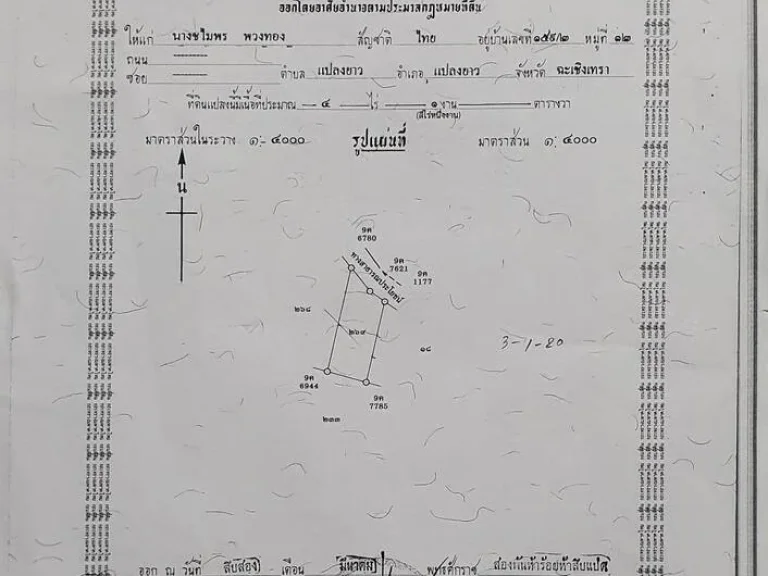 ออกโดยอาศัยอำนาจตามประมวลกฎหมายที่ดิน
ให้แก่ นางชไมพร พวงทอง สัญชาติ ไทย อยู่บ้านเลขที่ ๑๕๙/๒ หมู่ที่ ๑๒
ถนน
ซอย ตำบล แปลงยาว อำเภอ แปลงยาว จังหวัด ฉะเชิงเทรา
ที่ดินแปลงนี้มีเนื้อที่ประมาณ ๔ ไร่ ๑ งาน ตารางวา
(สี่ไร่หนึ่งงาน)
มาตราส่วนในระวาง ๑:๔๐๐๐ รูปแผนที่ มาตราส่วน ๑:๔๐๐๐
น
9ค
6780
9ค
7621
9ค
1177
ทางสาธารณประโยชน์
๒๖๘
๒๖๙
๑๘
3-1-20
9ค
6944
9ค
7785
๒๓๓
ออก ณ วันที่ สิบสอง เดือน มีนาคม พุทธศักราช สองพันห้าร้อยห้าสิบแปด